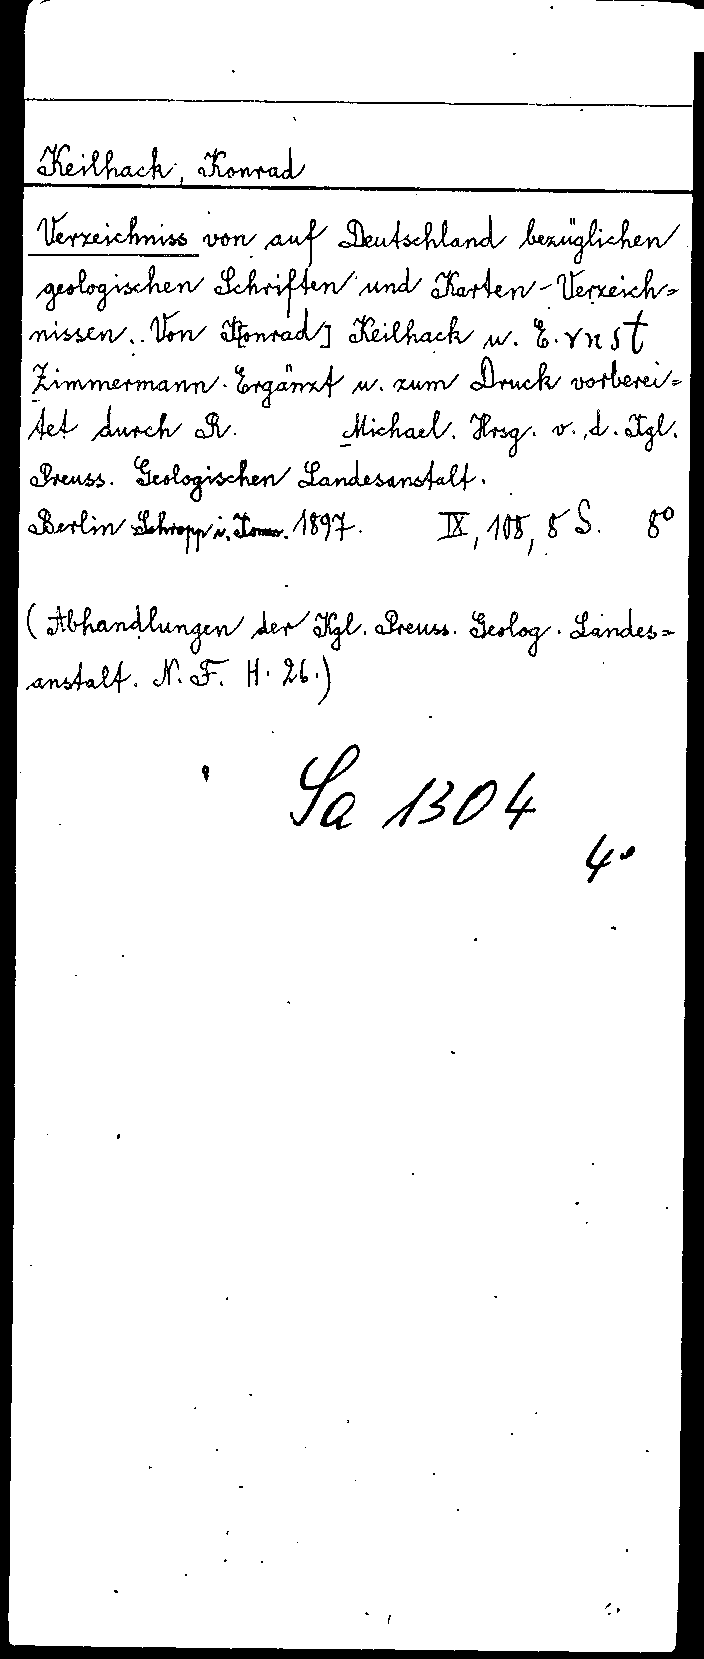 Keilhack, Konrad
Verzeichniss von auf Deutschland bezüglichen
geologischen Schriften und Karten-Verzeich=
nissen. Von K[onrad] Keilhack u. E. rnst
Zimmermann. Ergänzt u. zum Druck vorberei=
tet durch R. Michael. Hrsg. v. d. Kgl.
Preuss. Geologischen Landesanstalt.
Berlin Schropp i. Komm. 1897. IX, 108, 8 S. 8°
(Abhandlungen der Kgl. Preuss. Geolog. Landes=
anstalt. N. F. H. 26.)
Sa 1304
4°